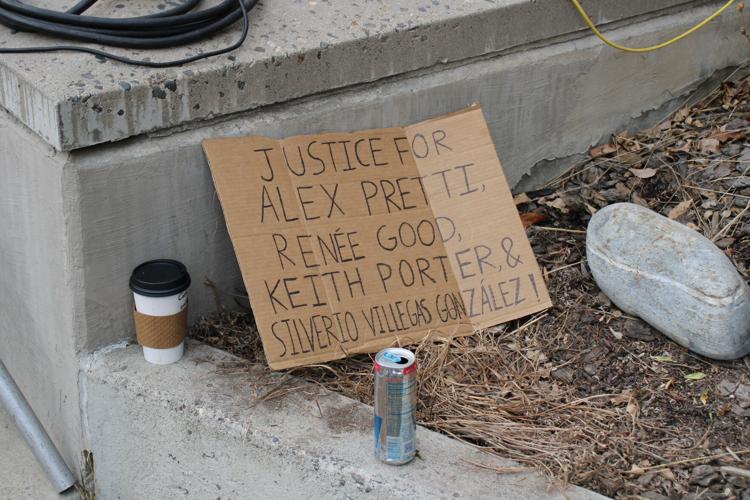 JUSTICE FOR
ALEX PRETTI,
RENÉE GOOD,
KEITH PORTER, &
SILVERIO VILLEGAS GONZÁLEZ!